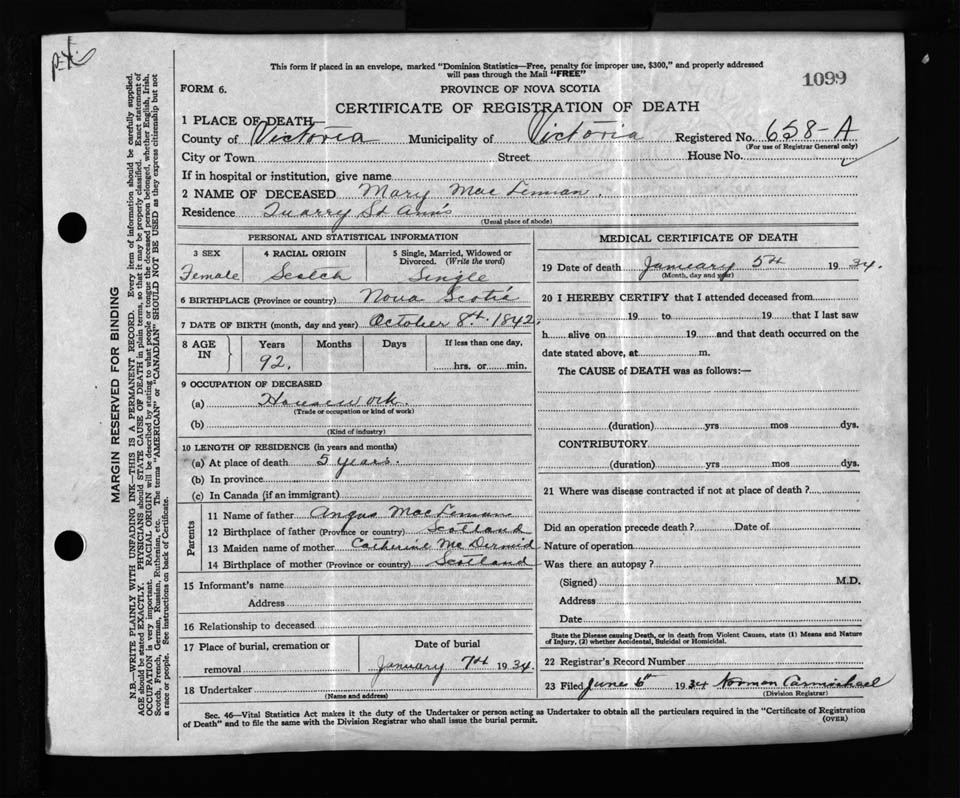 P-X.
This form if placed in an envelope, marked "Dominion Statistics—Free, penalty for improper use, $300," and properly addressed
will pass through the Mail "FREE"
1099
FORM 6.
PROVINCE OF NOVA SCOTIA
CERTIFICATE OF REGISTRATION OF DEATH
1 PLACE OF DEATH
County of Victoria Municipality of Victoria Registered No. 658-A
(For use of Registrar General only)
City or Town Street House No.
If in hospital or institution, give name
2 NAME OF DECEASED Mary MacLennan.
Residence Quarry St Ann's
(Usual place of abode)
PERSONAL AND STATISTICAL INFORMATION
3 SEX
Female
4 RACIAL ORIGIN
Scotch
5 Single, Married, Widowed or
Divorced. (Write the word)
Single
6 BIRTHPLACE (Province or country) Nova Scotia
7 DATE OF BIRTH (month, day and year) October 8th. 1842.
8 AGE
IN
Years
92.
Months
Days
If less than one day,
hrs. or min.
9 OCCUPATION OF DECEASED
(a) Housework.
(Trade or occupation or kind of work)
(b)
(Kind of industry)
10 LENGTH OF RESIDENCE (in years and months)
(a) At place of death 5 years.
(b) In province
(c) In Canada (if an immigrant)
Parents
11 Name of father Angus MacLennan
12 Birthplace of father (Province or country) Scotland
13 Maiden name of mother Catherine McDermid
14 Birthplace of mother (Province or country) Scotland
15 Informant's name
Address
16 Relationship to deceased
17 Place of burial, cremation or
removal
Date of burial
January 7th 1934.
18 Undertaker
(Name and address)
MEDICAL CERTIFICATE OF DEATH
19 Date of death January 5th 1934.
(Month, day and year)
20 I HEREBY CERTIFY that I attended deceased from
19 to 19 that I last saw
h alive on 19 and that death occurred on the
date stated above, at m.
The CAUSE of DEATH was as follows:—
(duration) yrs mos dys.
CONTRIBUTORY
(duration) yrs mos dys.
21 Where was disease contracted if not at place of death?
Did an operation precede death? Date of
Nature of operation
Was there an autopsy?
(Signed) M.D.
Address
Date
State the Disease causing Death, or in death from Violent Causes, state (1) Means and Nature
of Injury, (2) whether Accidental, Suicidal or Homicidal.
22 Registrar's Record Number
23 Filed June 6th 1934 Norman Carmichael
(Division Registrar)
Sec. 46—Vital Statistics Act makes it the duty of the Undertaker or person acting as Undertaker to obtain all the particulars required in the "Certificate of Registration
of Death" and to file the same with the Division Registrar who shall issue the burial permit.
(OVER)
MARGIN RESERVED FOR BINDING
N.B.—WRITE PLAINLY WITH UNFADING INK—THIS IS A PERMANENT RECORD. Every item of information should be carefully supplied.
AGE should be stated EXACTLY. PHYSICIANS should STATE CAUSE OF DEATH in plain terms, so that it may be properly classified. Exact statement of
OCCUPATION is very important. RACIAL ORIGIN will be described by stating to what people or tongue the deceased person belonged, whether English, Irish,
Scotch, French, German, Russian, Ruthenian, etc. The terms "AMERICAN" or "CANADIAN" SHOULD NOT BE USED as they express citizenship but not
a race or people. See instructions on back of Certificate.